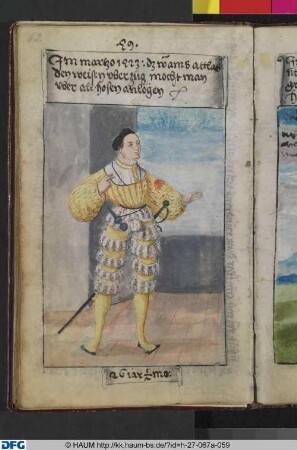 59.
Im marzo 1523. dz wams atlas
den weisen yberzug mocht man
yber all hosen anlegen
26 iar
DFG
© HAUM http://kk.haum-bs.de/?id=h-27-067a-059